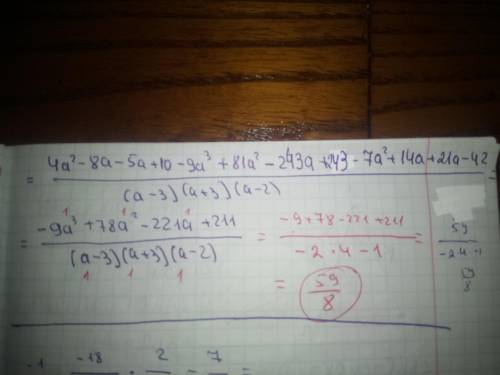 = (4a² - 8a - 5a + 10 - 9a³ + 81a² - 243a + 243 - 7a² + 14a + 21a - 42) / ((a-3)(a+3)(a-2)) =
= (-9a³ + 78a² - 221a + 211) / ((a-3)(a+3)(a-2)) = (-9+78-221+211) / (-2·4-1) = 59 / (-2·4·1)
1 1 1
1 1 1
= 59/8
59/8
-1 -18 · 2 - 7 =